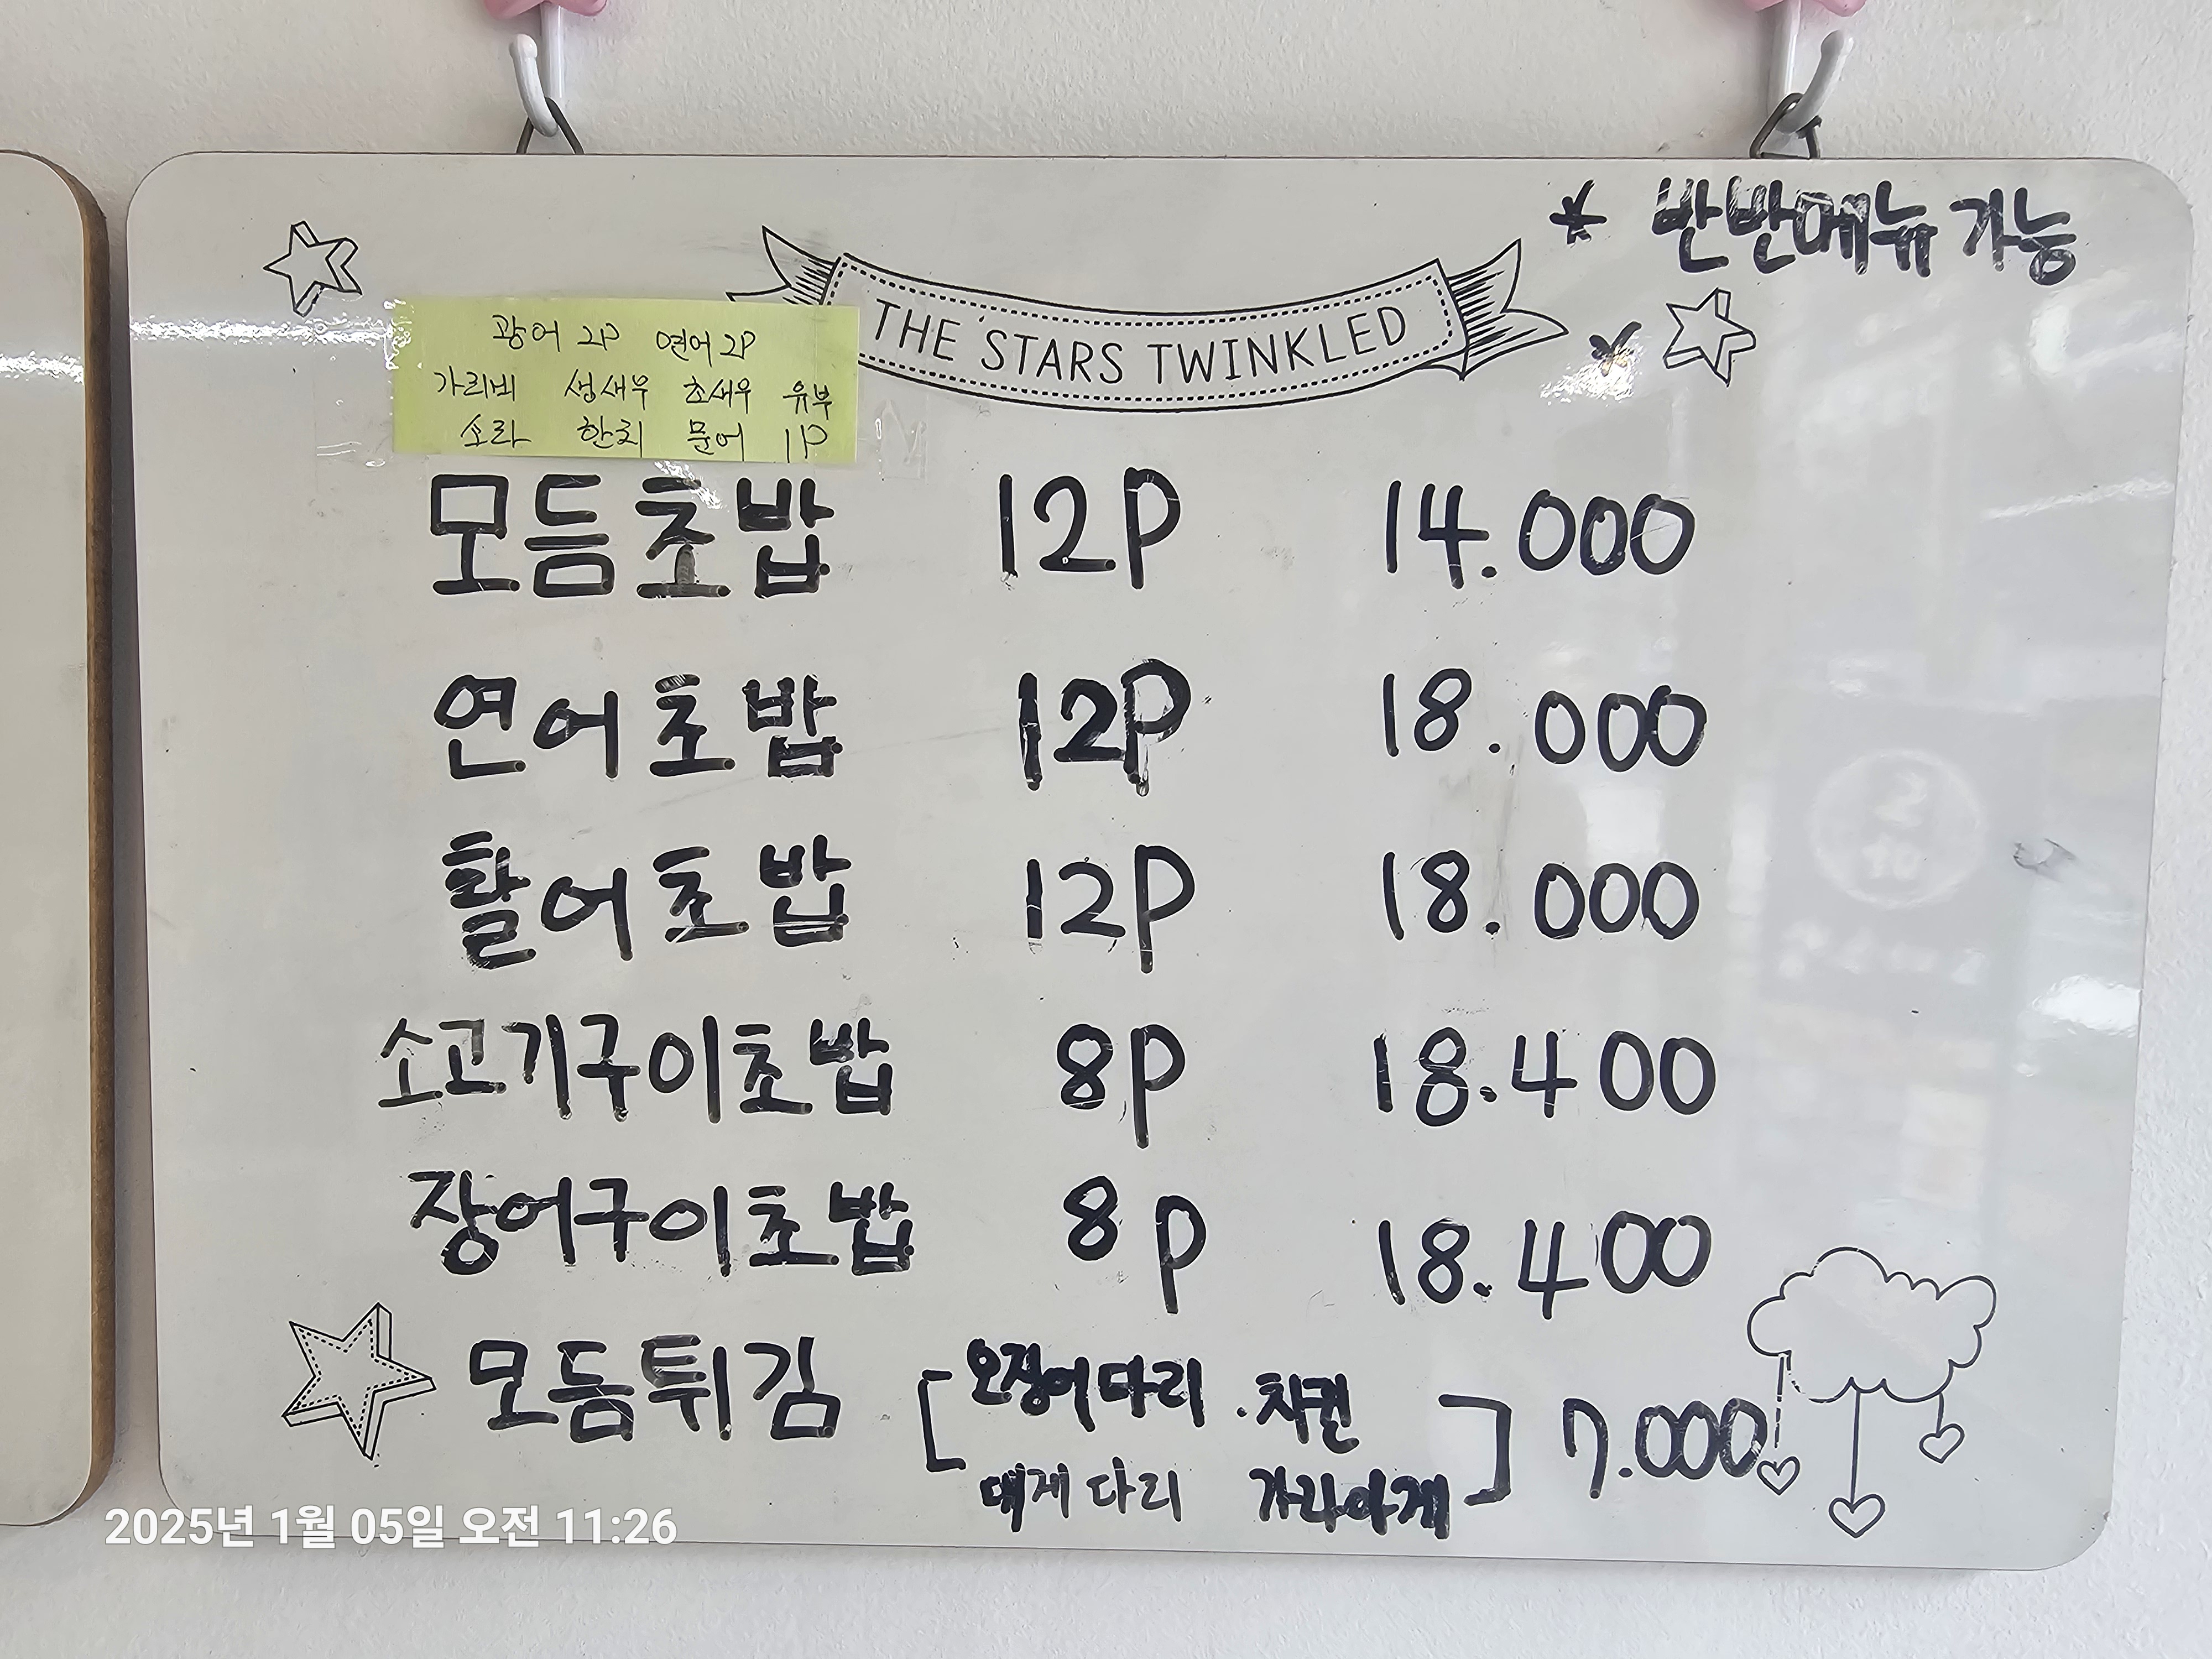 * 반반메뉴 가능
THE STARS TWINKLED
광어 2P 연어 2P
가리비 생새우 초새우 유부
소라 한치 문어 1P
모듬초밥 12P 14.000
연어초밥 12P 18.000
활어초밥 12P 18.000
소고기구이초밥 8P 18.400
장어구이초밥 8P 18.400
모듬튀김 [ 오징어다리 . 치킨
대게다리 가라아게 ] 7.000
2025년 1월 05일 오전 11:26